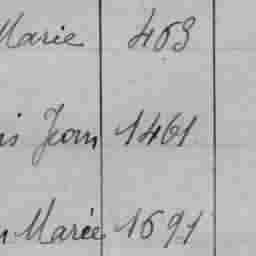 Marie 469
is Jean 1461
n Marie 1691